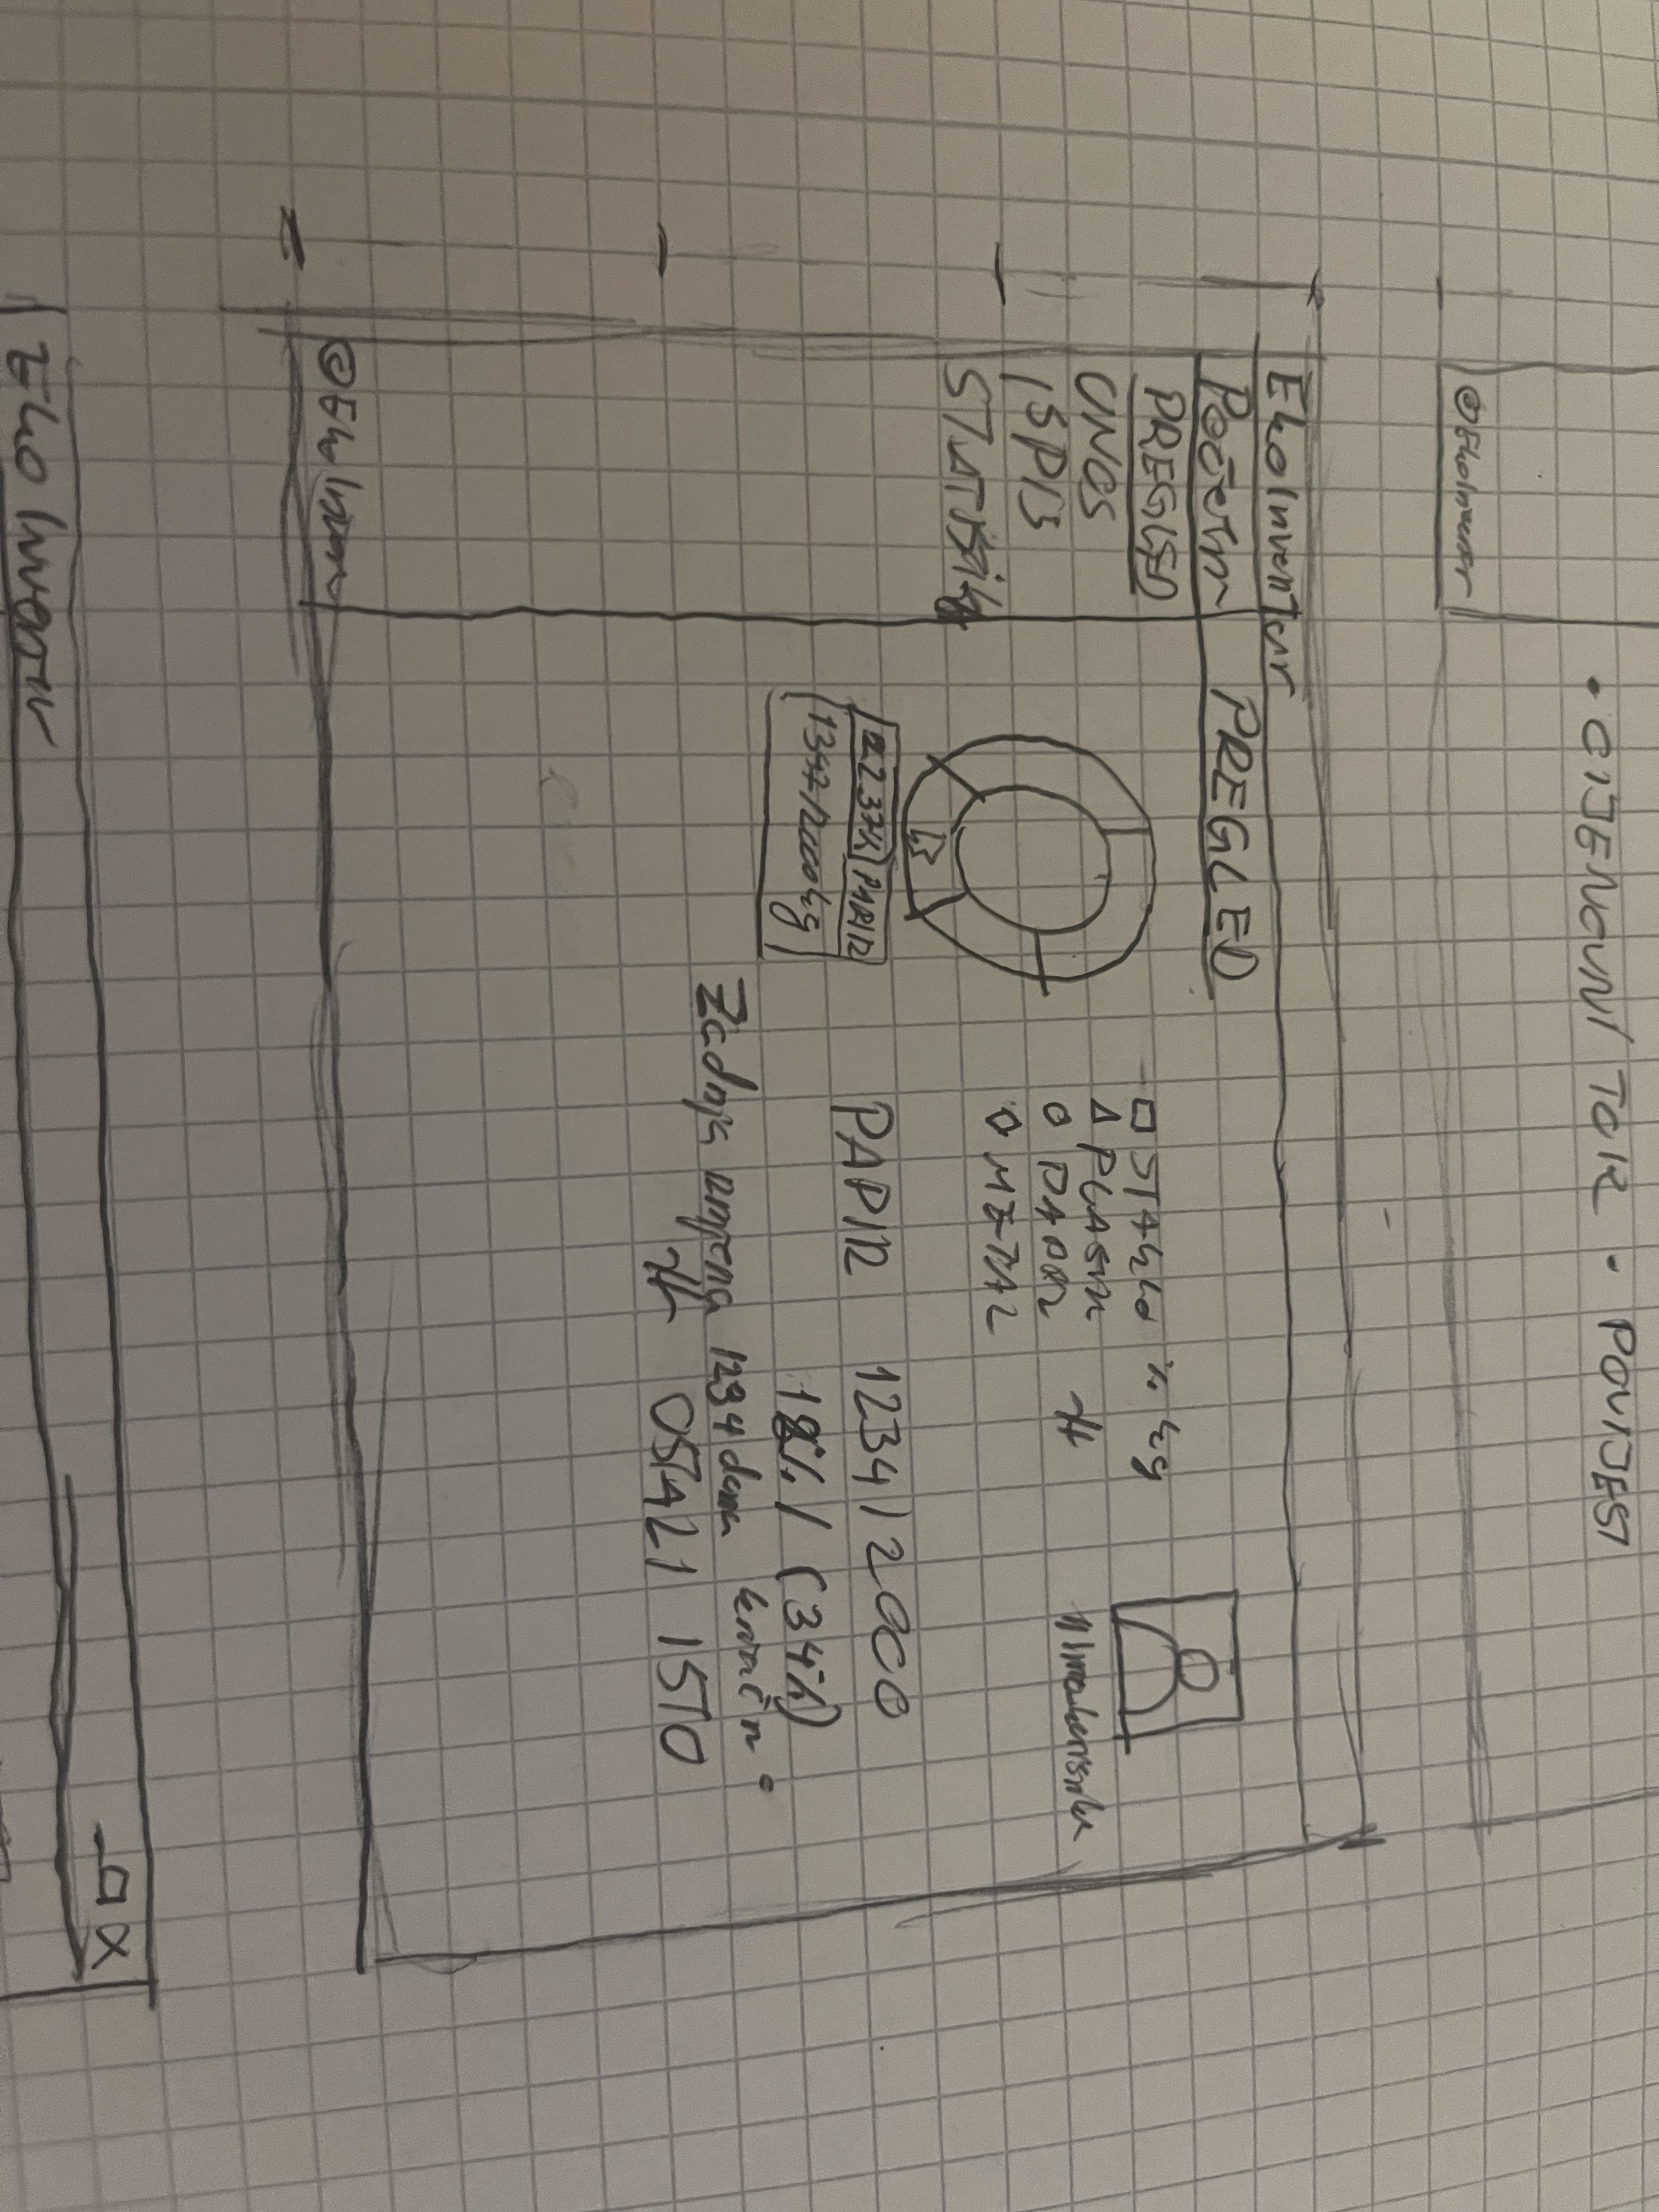 • CIJENOVNI TOR • POVIJEST
© EkoInventar
EkoInventar
Početn
PREGLED
PREGLED
UNOS
ISPIS
STATISTIKA
STAKLO % kg
PLASTIK
PAPIR
METAL
# Ime korisnika
237% PAPIR
1347/2000 kg
PAPIR 1234 / 2000
18% / (34%)
Zadnja izmjena 1234 dana
# OSTALI ISTO
© EkoInven
EkoInventar